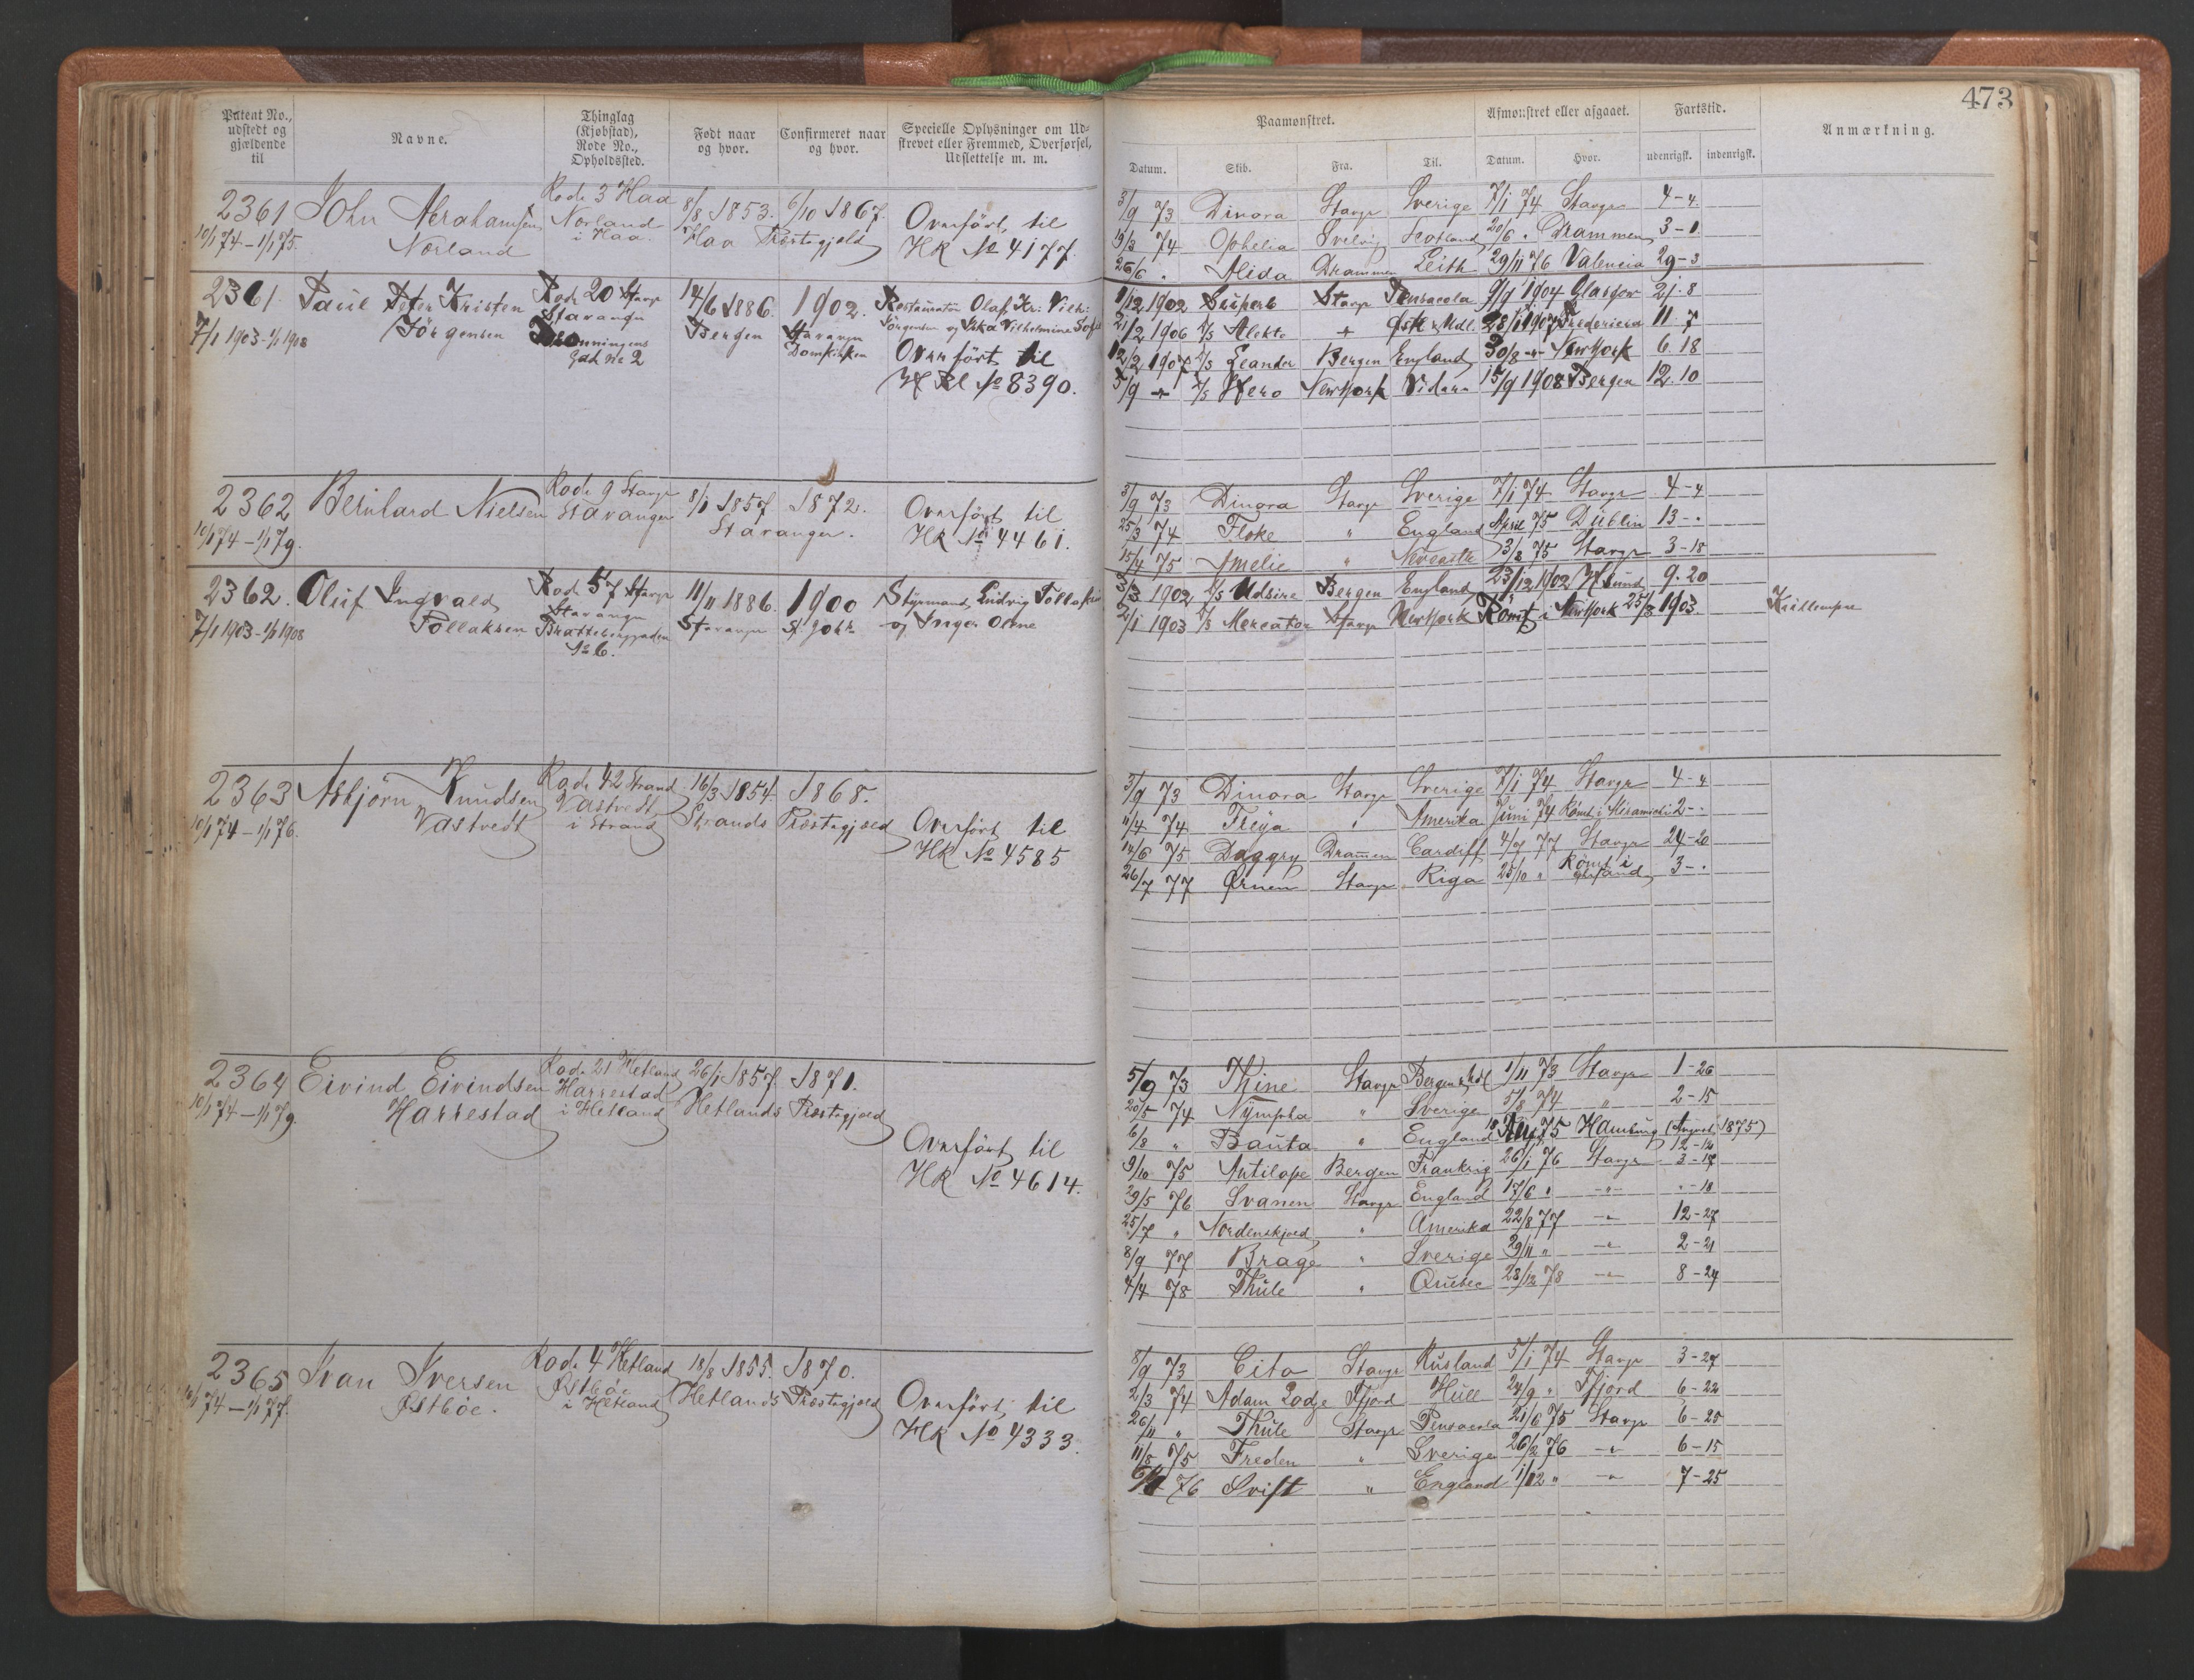 473
Patent No., udstedt og gjældende til
Navne.
Thinglag (Kjøbstad), Rode No., Opholdssted.
Født naar og hvor.
Confirmeret naar og hvor.
Specielle Oplysninger om Udskrevet eller Fremmed, Overførsel, Udslettelse m. m.
Paamønstret.
Afmønstret eller afgaaet.
Fartstid.
Anmærkning.
Datum. Skib. Fra. Til. Datum. Hvor. udenrigsk. indenrigsk.
2361 John Abrahamsen Rode 3 Haa 8/8 1853. 6/10 1867.
10/1 74 - 1/1 75. Norland Norland i Haa. Haa Præstegjeld
Overført til
HR No 4177.
3/9 73 Dinora Stavgr Sverige 7/1 74 Stavgr 4-4.
19/3 74 Ophelia Svelvig Scotland 20/6 " Drammen 3-1
26/6 " Alida Drammen Leith 29/11 76 Valencia 29-3
2361. Paul Peter Kristen Rode 20 Stavgr 14/6 1886. 1902.
7/1 1903 - 1/1 1908 Jörgensen Stavanger Bergen Stavanger Domkirken
gade No 2
Restauratör Olaf Kr: Vilh:
Jörgensen og Vilhelmine
Overført til
H Rl No 8390.
1/12 1902 Superb Stavgr Pensacola 9/9 1904 Glasgow 21. 8
21/2 1906 D/S Alekto 28/1 1907 Fredericia 11. 7
12/2 1907 D/S Leander Bergen England 30/8 -"- NewYork 6. 18
5/9 -"- D/S Hero NewYork 15/9 1908 Bergen 12. 10
2362 Bernhard Nielsen Rode 9 Stavgr 8/1 1857 1872.
10/1 74 - 1/1 79. Stavanger Stavanger.
Overført til
HR No 4461.
3/9 73 Dinora Stavgr Sverige 7/1 74 Stavgr 4-4
25/3 74 Floke " England April 75 Dublin 13-.
15/4 75 Amelie " Newcastle 3/8 75 Stavgr 3-18
2362. Oluf Ingvald Rode 57 Stavgr 11/11 1886. 1900
7/1 1903 - 1/1 1908 Tollaksen Stavanger Stavanger St. Joh.
No 6.
Styrmand Ludvig Tollaksen
og Inger Oline
3/3 1902 D/S Udsire Bergen England 23/12 1902 9. 20
2/1 1903 D/S Mercator Stavgr NewYork Römt i NewYork 25/3 1903.
2363 Asbjörn Knudsen Rode 42 Strand 16/3 1854. 1868.
10/1 74 - 1/1 76. Vastvedt Vastvedt i Strand Strands Præstegjeld
Overført til
HR No 4585
3/9 73 Dinora Stavgr Sverige 7/1 74 Stavgr 4-4
11/4 74 Freya " Amerika Juni 74 Römt i Miramichi 2-.
14/6 75 Daggry Dramen Cardiff 4/7 77 Stavgr 24-20
26/7 77 Ørnen Stavgr Riga 25/10 " Römt i 3-.
2364 Eivind Eivindsen Rode 21 Hetland 26/1 1857. 1871.
10/1 74 - 1/1 79. Harrestad Harrestad i Hetland Hetlands Præstegjeld
Overført til
HR No 4614.
5/9 73 Thine Stavgr Bergen & Mdl 1/11 73 Stavgr 1-26
20/5 74 Nympha " Sverige 5/8 74 " 2-15
6/8 " Bauta " England 75 Hamburg (August 1875) 12-14
9/10 75 Antilope Bergen Frankrig 26/1 76 Stavgr 3-17
29/5 76 Svanen Stavgr England 17/6 " -"- "-18
25/7 " Nordenskjold " Amerika 22/8 77 -"- 12-27
8/9 77 Brage " Sverige 29/11 " -"- 2-21
4/4 78 Thule " Quebec 28/12 78 -"- 8-24
2365 Ivar Iversen Rode 4 Hetland 18/8 1855. 1870.
10/1 74 - 1/1 77. Østböe. Østböe i Hetland Hetlands Præstegjeld
Overført til
HR No 4333.
8/9 73 Cito Stavgr Rusland 5/1 74 Stavgr 3-27
2/3 74 Adam Lodge Ffjord Hull 24/9 " Ffjord 6-22
26/11 " Thule Stavgr Pensacola 21/6 75 Stavgr 6-25
11/8 75 Freden " Sverige 26/2 76 -"- 6-15
76 Svift " England 1/12 " -"- 7-25